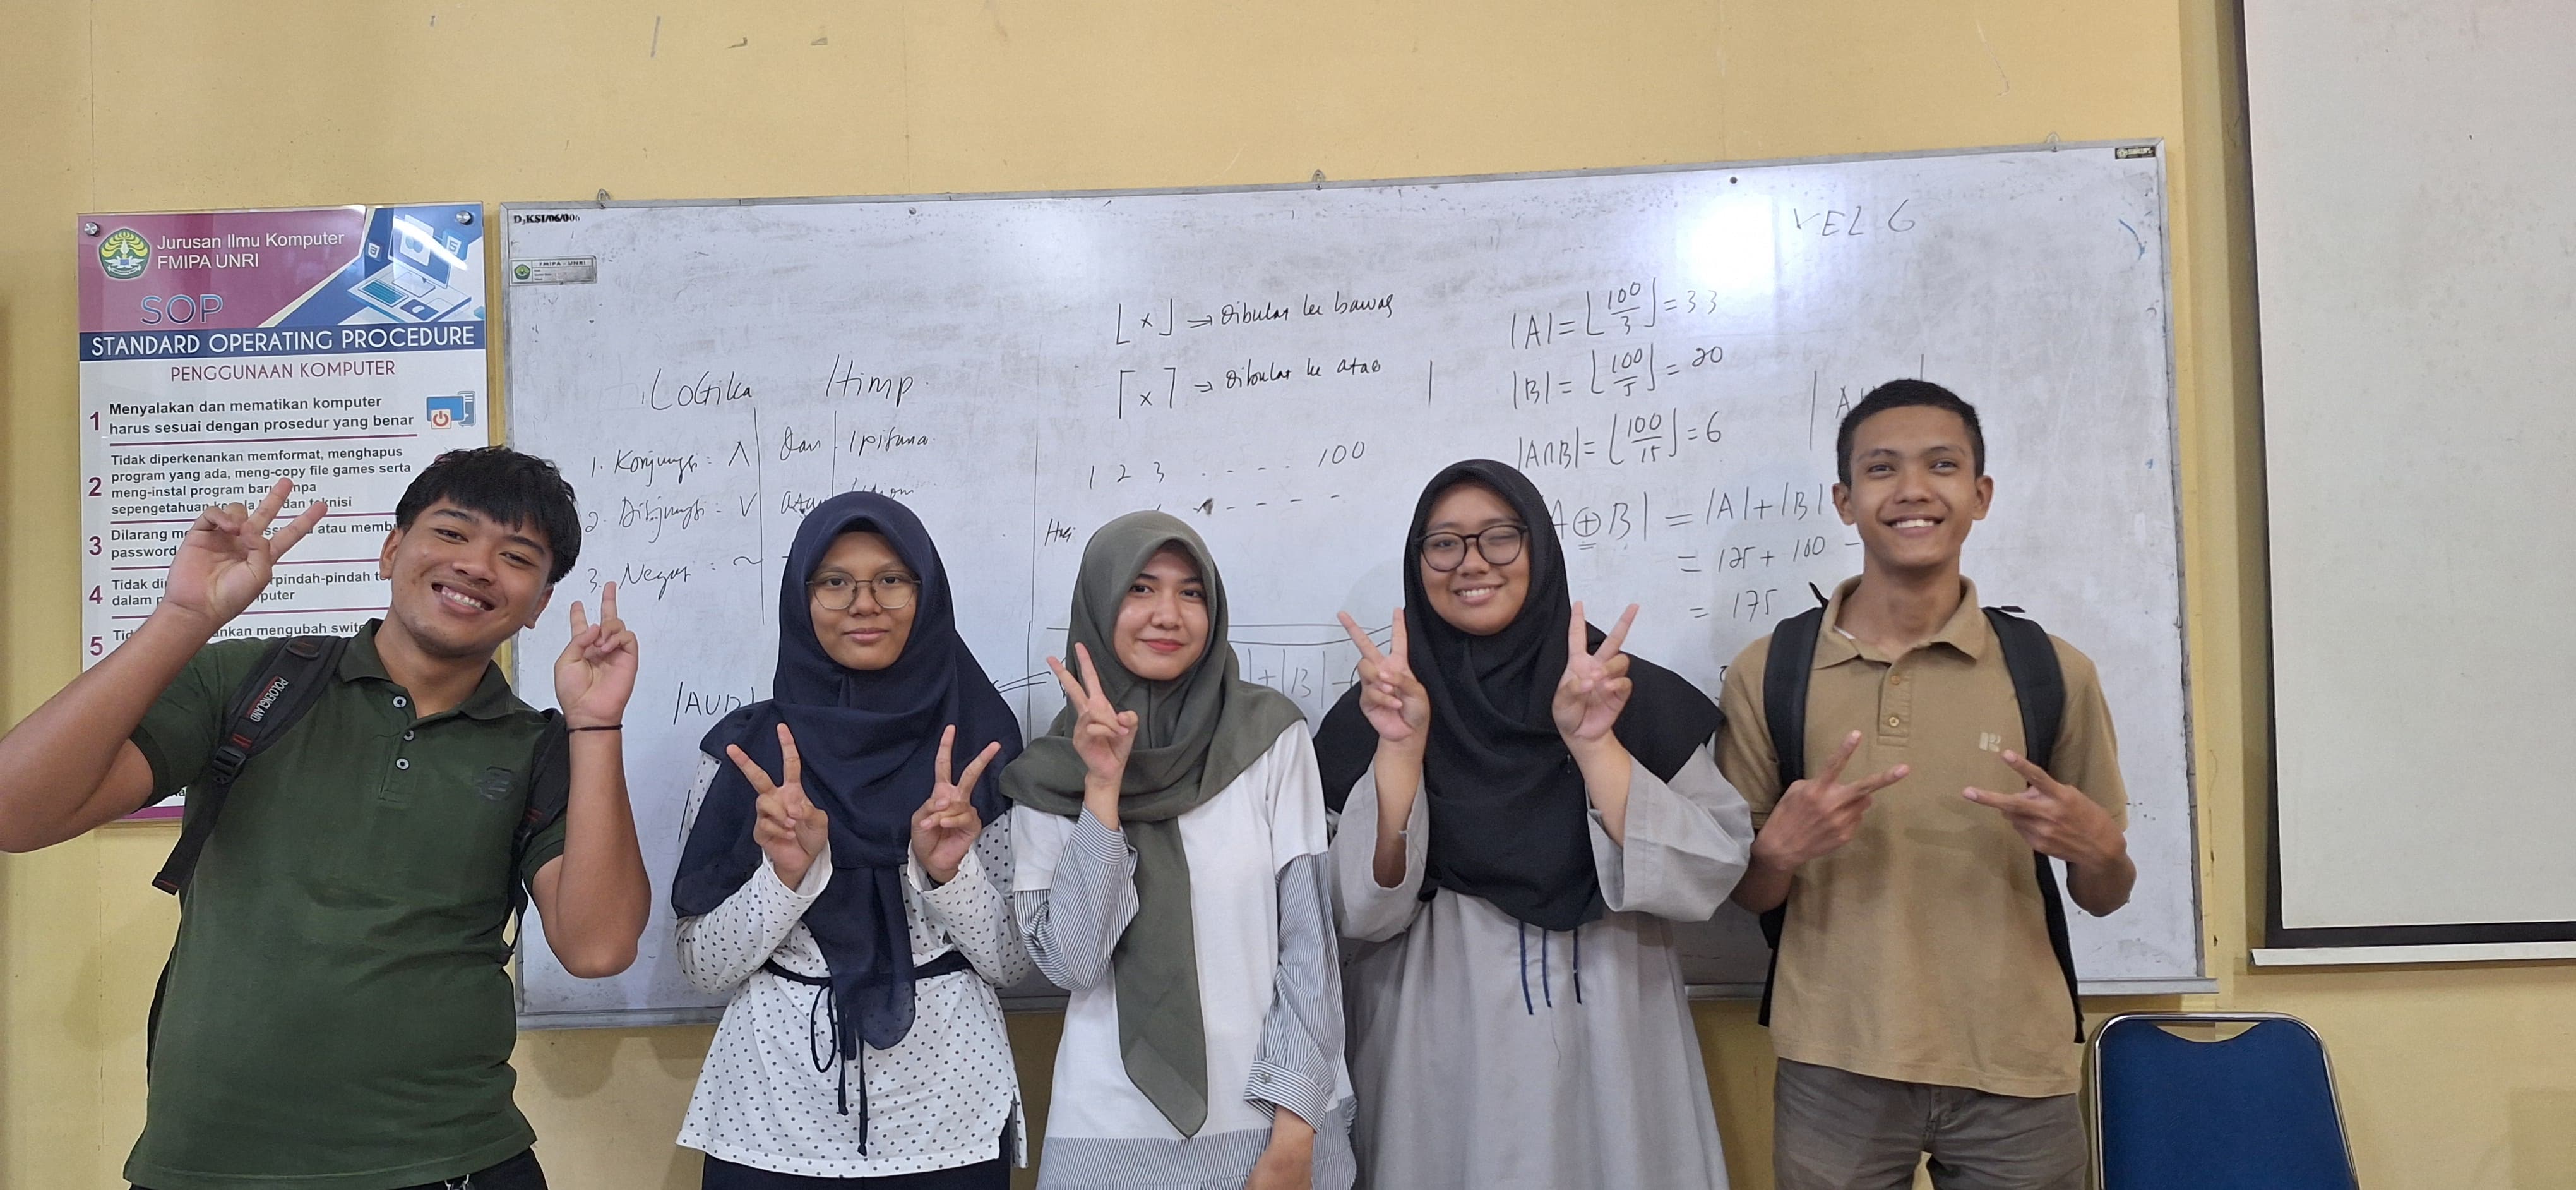 Jurusan Ilmu Komputer
FMIPA UNRI
SOP
STANDARD OPERATING PROCEDURE
PENGGUNAAN KOMPUTER
1 Menyalakan dan mematikan komputer
harus sesuai dengan prosedur yang benar
2 Tidak diperkenankan memformat, menghapus
program yang ada, meng-copy file games serta
meng-instal program
sepengetahuan dan teknisi
3 Dilarang atau
password
4 Tidak
dalam
5 mengubah
POLOENGLAND
FMIPA - UNRI
LoGika Himp.
1. Konjungsi : ∧ dan
2. Disjungsi : ∨ atau
3. Negasi : ~
|AUB|
⌊x⌋ ⇒ dibulat ke bawah
⌈x⌉ ⇒ dibulat ke atas
1 2 3 . . . . . 100
|+|B|-
VEL 6
|A| = ⌊100/3⌋ = 33
|B| = ⌊100/5⌋ = 20
|A∩B| = ⌊100/15⌋ = 6
A⊕B| = |A|+|B|
= 125 + 100 -
= 175
R